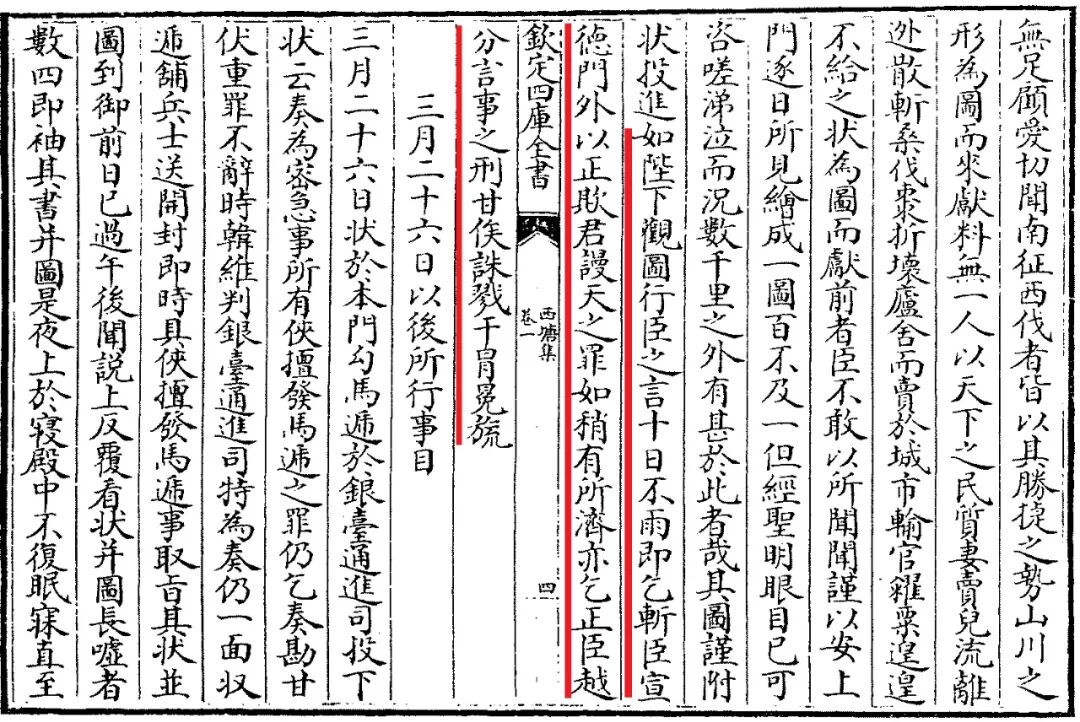 無足顧愛切聞南征西伐者皆以其勝捷之勢山川之
形為圖而來獻料無一人以天下之民質妻賣兒流離
逃散斬桑伐棗折壞廬舍而賣於城市輸官糴粟遑遑
不給之状為圖而獻前者臣不敢以所聞聞謹以安上
門逐日所見繪成一圖百不及一但經聖明眼目已可
咨嗟涕泣而況數千里之外有甚於此者哉其圖謹附
状投進如陛下觀圖行臣之言十日不雨即乞斬臣宣
德門外以正欺君謾天之罪如稍有所濟亦乞正臣越
欽定四庫全書
西塘集
卷一
四
分言事之刑甘俟誅戮干冒冕旒
三月二十六日以後所行事目
三月二十六日状於本門勾馬遞於銀臺通進司投下
状云奏為密急事所有俠擅發馬遞之罪仍乞奏勘甘
伏重罪不辭時韓維判銀臺通進司特為奏仍一面収
遞舖兵士送開封即時具俠擅發馬遞事取㫖其状並
圖到御前日已過午後聞説上反覆看状并圖長噓者
數四即袖其書并圖是夜上於寝殿中不復眠寐直至